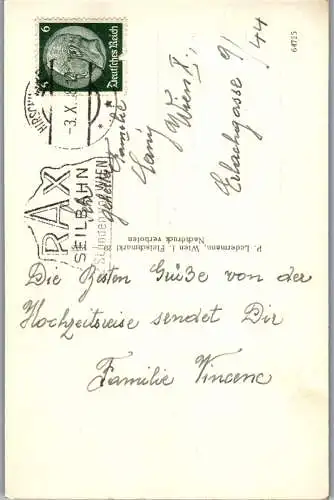 64725
6
Deutsches Reich
HIRSCHWANG
-3.X.38
RAX
SEILBAHN
Stunden von WIEN
Familie
Wien X.,
Erlachgasse 9/
/44
P. Ledermann, Wien I, Fleischmarkt
Nachdruck verboten
Die Besten Grüße von der
Hochzeitsreise sendet Dir
Familie Vincenc